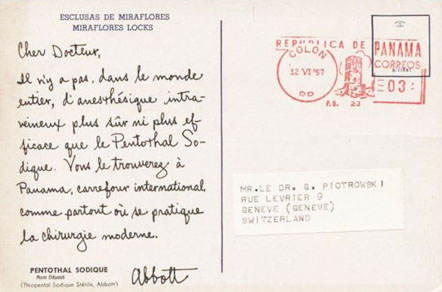 ESCLUSAS DE MIRAFLORES
MIRAFLORES LOCKS
Cher Docteur,
Il n'y a pas, dans le monde
entier, d'anesthésique intra-
veineux plus sûr ni plus ef-
ficace que le Pentothal So-
dique. Vous le trouverez à
Panama, carrefour international,
comme partout où se pratique
la chirurgie moderne.
Abbott
PENTOTHAL SODIQUE
Nom Déposé
(Thiopental Sodique Stérile, Abbott)
REPUBLICA DE PANAMA
CORREOS
COLON
12 VI 57
03
P.B. 23
MR.LE DR. G. PIOTROWSKI
RUE LEVRIER 9
GENEVE (GENEVE)
SWITZERLAND